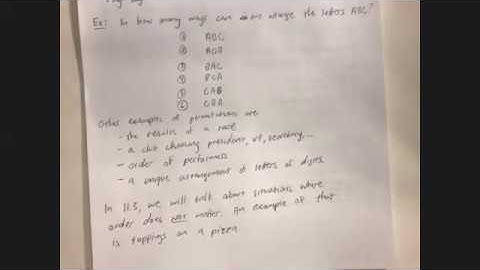 Ex: In how many ways can we arrange the letters ABC?
① ABC
② ACB
③ BAC
④ BCA
⑤ CAB
⑥ CBA
Other examples of permutations are
- the results of a race
- a club choosing president, vp, secretary...
- order of performers
- a unique arrangement of letters or digits
In 11.3, we will talk about situations where
order does not matter. An example of that
is toppings on a pizza